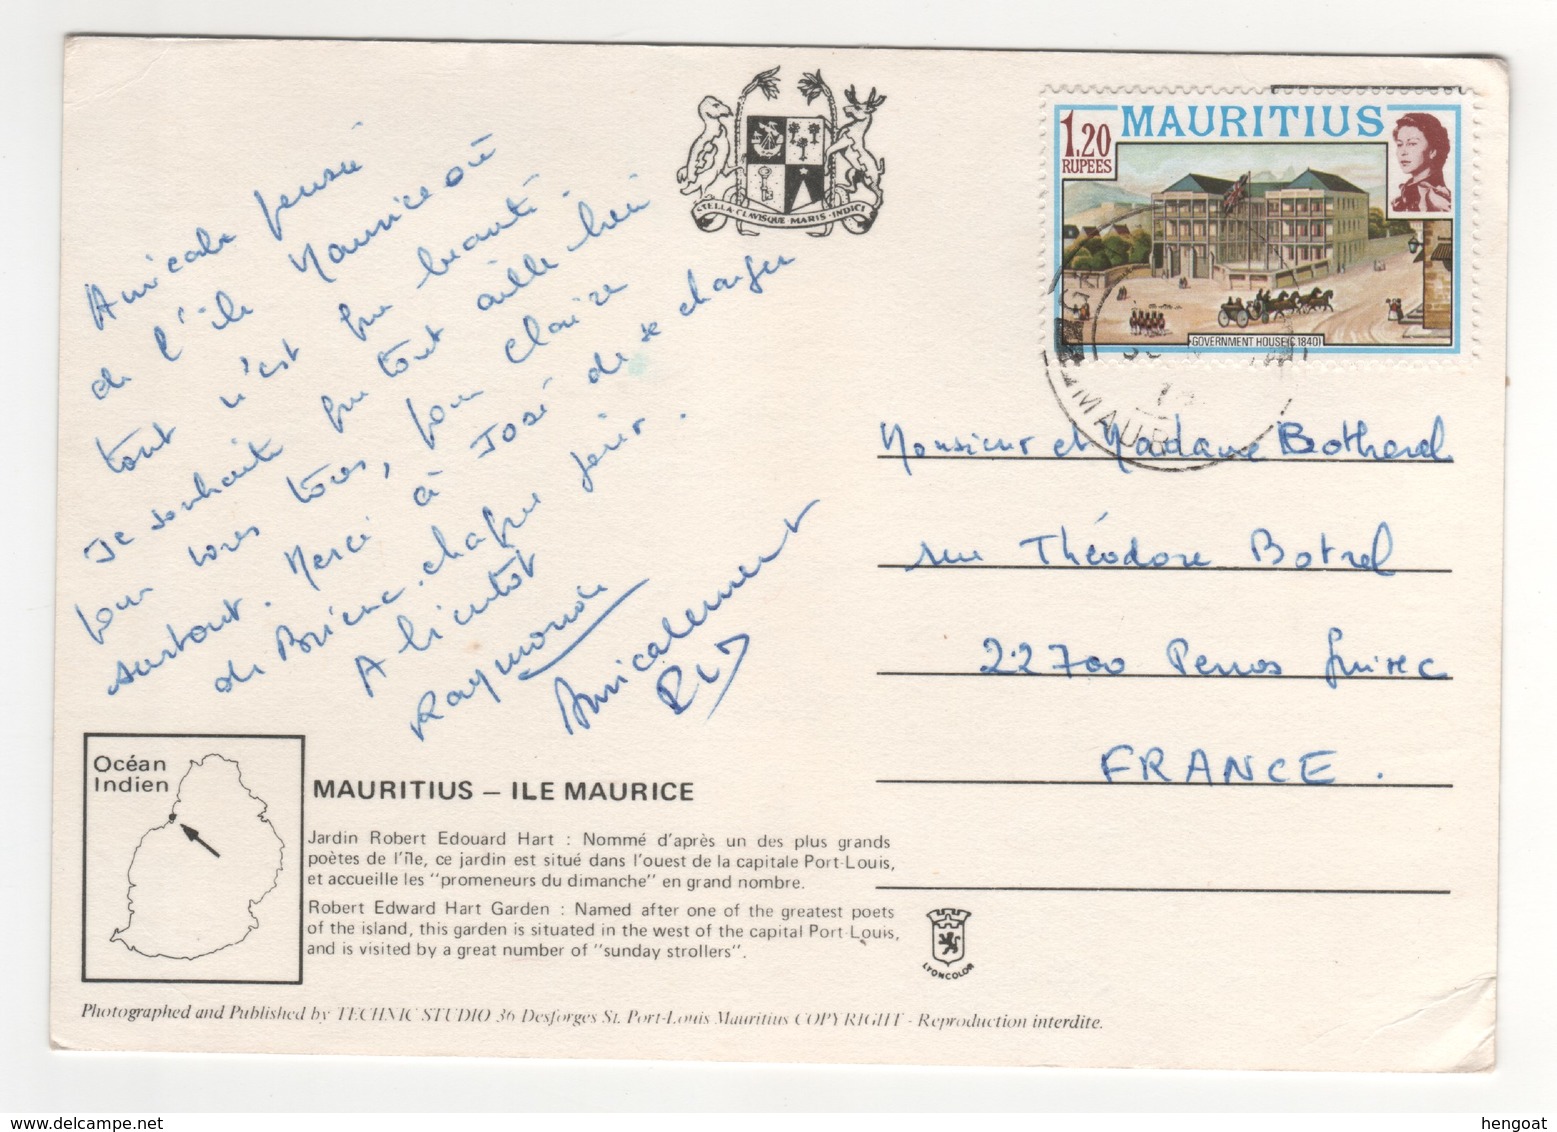 Amicale pensée
de l'île Maurice où
tout n'est que beauté.
Je souhaite que tout aille bien
pour vous tous, pour Claire
surtout. Merci à José de se charger
de Brieuc chaque jour.
A bientôt
Raymonde
Amicalement
STELLA CLAVISQUE MARIS INDICI
1.20
RUPEES
MAURITIUS
GOVERNMENT HOUSE (C 1840)
MAUR
Monsieur et Madame Botherel
rue Théodore Botrel
22700 Perros Guirec
FRANCE.
Océan
Indien
MAURITIUS – ILE MAURICE
Jardin Robert Edouard Hart : Nommé d'après un des plus grands
poètes de l'île, ce jardin est situé dans l'ouest de la capitale Port-Louis,
et accueille les "promeneurs du dimanche" en grand nombre.
Robert Edward Hart Garden : Named after one of the greatest poets
of the island, this garden is situated in the west of the capital Port-Louis,
and is visited by a great number of "sunday strollers".
LYONCOLOR
Photographed and Published by TECHNIC STUDIO 36 Desforges St. Port-Louis Mauritius COPYRIGHT - Reproduction interdite.
hengoat